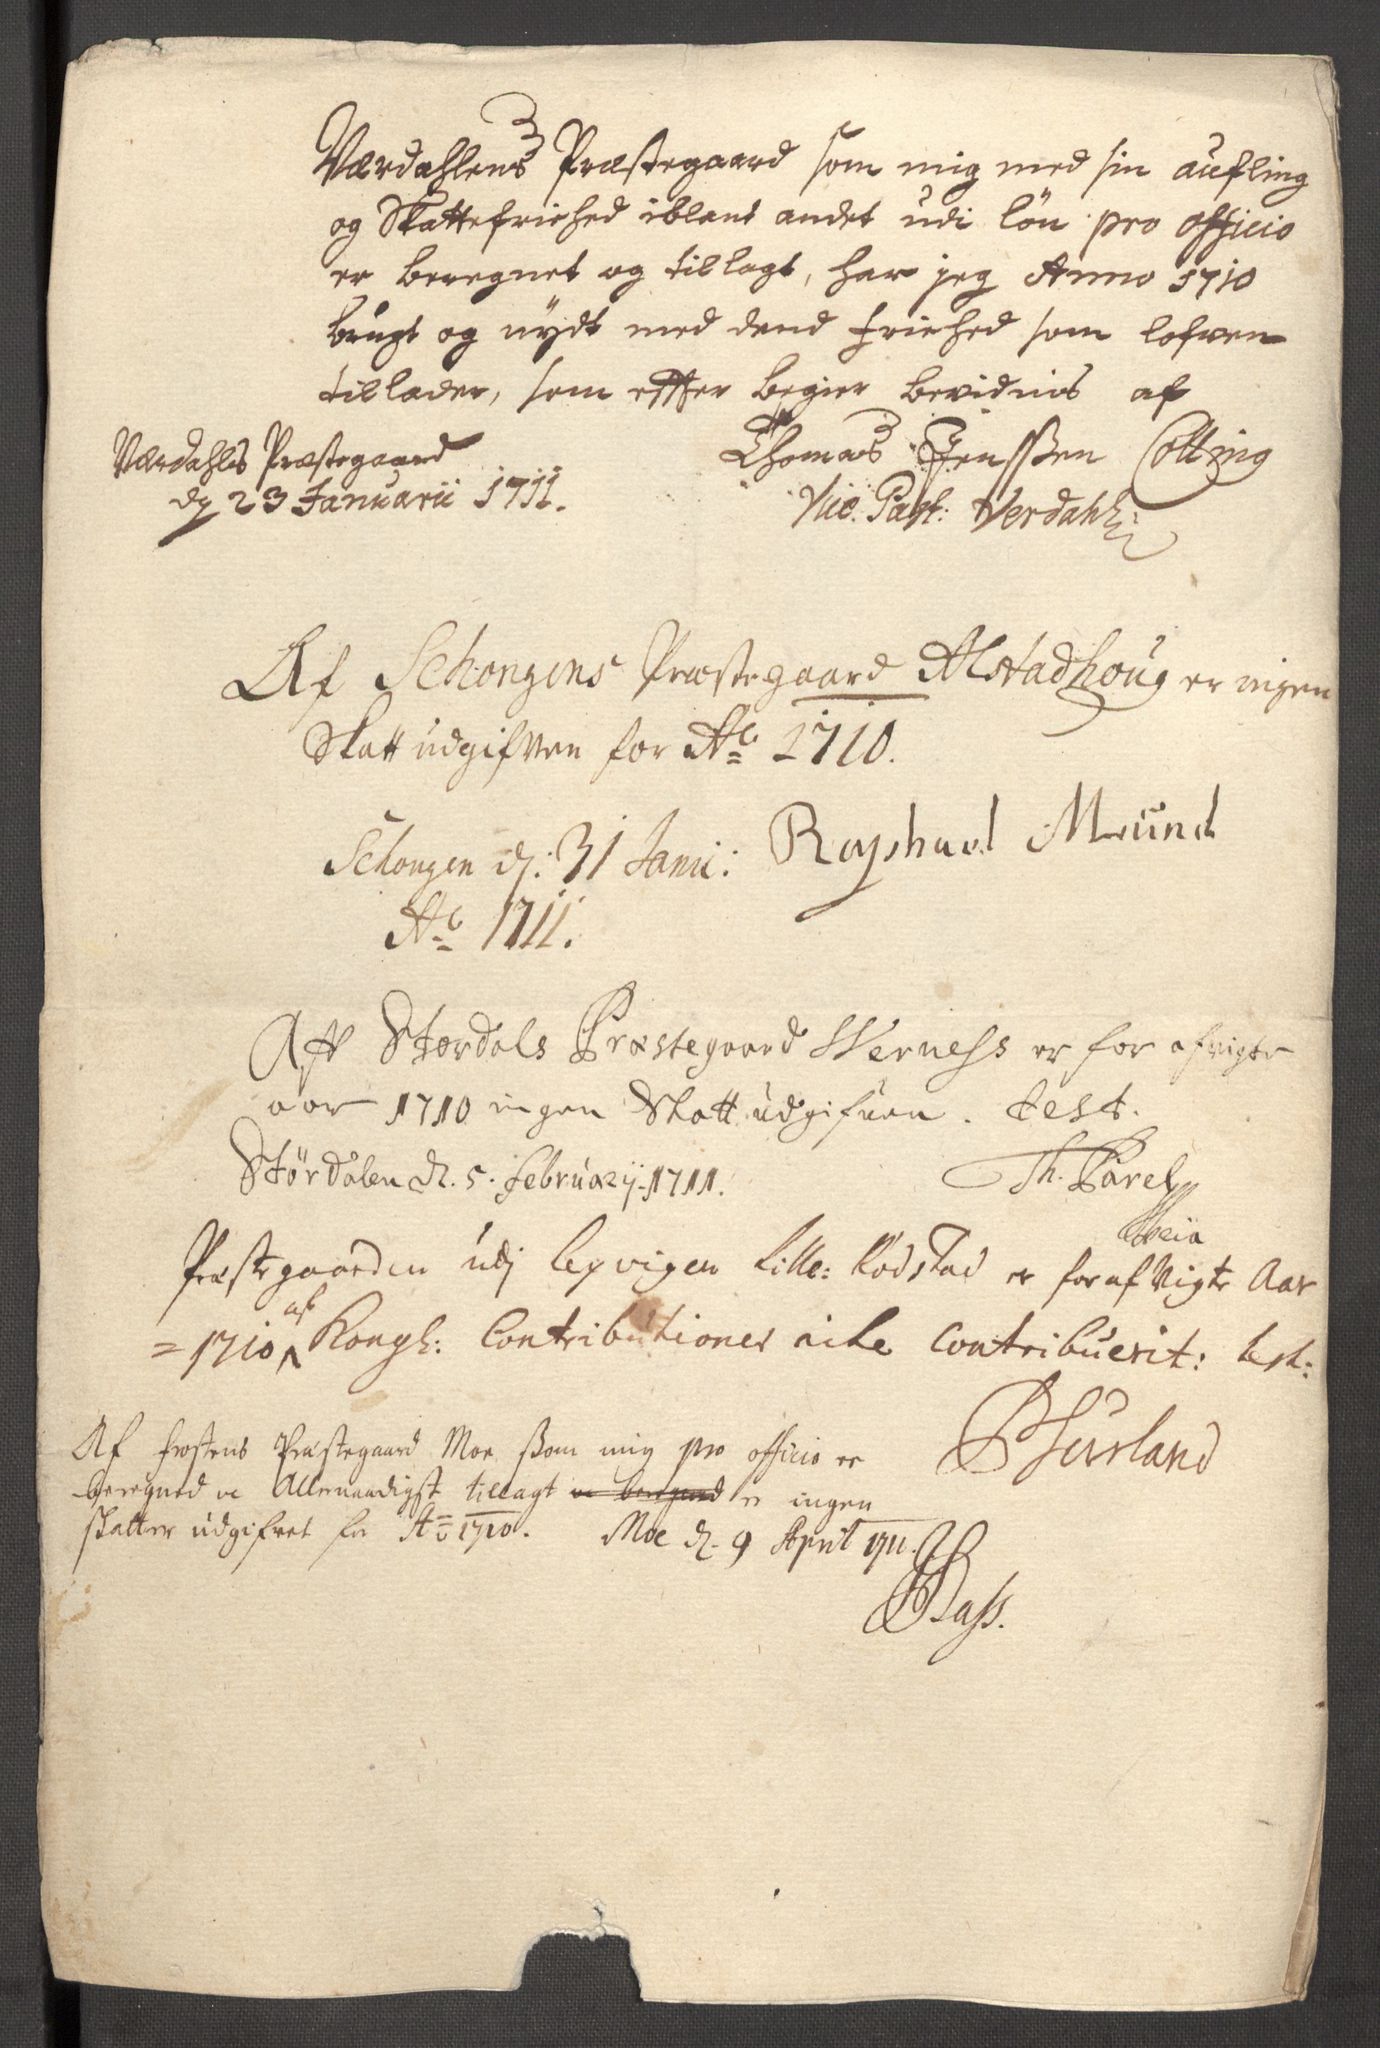 Værdahlens Præstegaard som mig med sin aufling
og Skattefriehed iblant andet udi lön pro officio
er beregnet og tillagt, har jeg Anno 1710
brugt og nydt med dend friehed som lofven
tillader, som effter begier bevidnis af
Thomas Jenssen Collzing
Værdahls Præstegaard
dn 23 Januarii 1711.
Vic. Past: Verdahl:
Af Schongens Præstegaard Alstadhoug er ingen
Skatt udgifven for Ao 1710.
Schongen d: 31 Janu: Raphael Mund
Ao 1711.
Aff Størdals Præstegaard Werness er for afvigte
aar 1710 ingen Skatt udgifven. Test.
Størdalen d. 5. februarij 1711.
Th. Parelj
Præstegaarden udj Lexvigen Lille: Kodstad er for afvigte Aar
=1710 af Kongl: Contributioner icke Contribuerit: test:
Hurland
Af frostens Præstegaard Moe ssom mig pro officio er
beregned oc Allernaadigst tillagt oc beregned er ingen
skatter udgifvet for Ao 1710. Moe d. 9 April 1711.